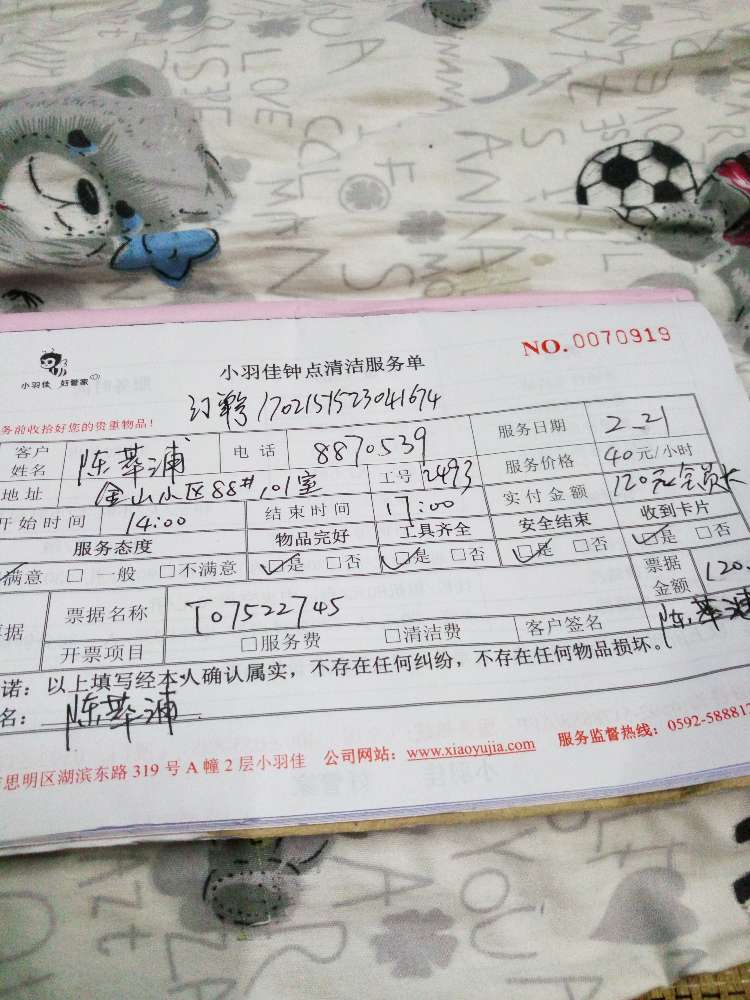 NO.0070919
小羽佳 好管家
小羽佳钟点清洁服务单
订单号1702151523041674
务前收拾好您的贵重物品!
客户姓名 陈苹浦 电话 8870539 服务日期 2.21
地址 金山小区88#101室 工号 2493 服务价格 40元/小时
开始时间 14:00 结束时间 17:00 实付金额 120元会员卡
服务态度 物品完好 工具齐全 安全结束 收到卡片
满意 □一般 □不满意 □是 □否 □是 □否 □是 □否 □是 □否
票据名称 T07522745 票据金额 120.
开票项目 □服务费 □清洁费 客户签名 陈苹浦
诺:以上填写经本人确认属实,不存在任何纠纷,不存在任何物品损坏。
名:陈苹浦
思明区湖滨东路319号A幢2层小羽佳 公司网站:www.xiaoyujia.com 服务监督热线:0592-588817